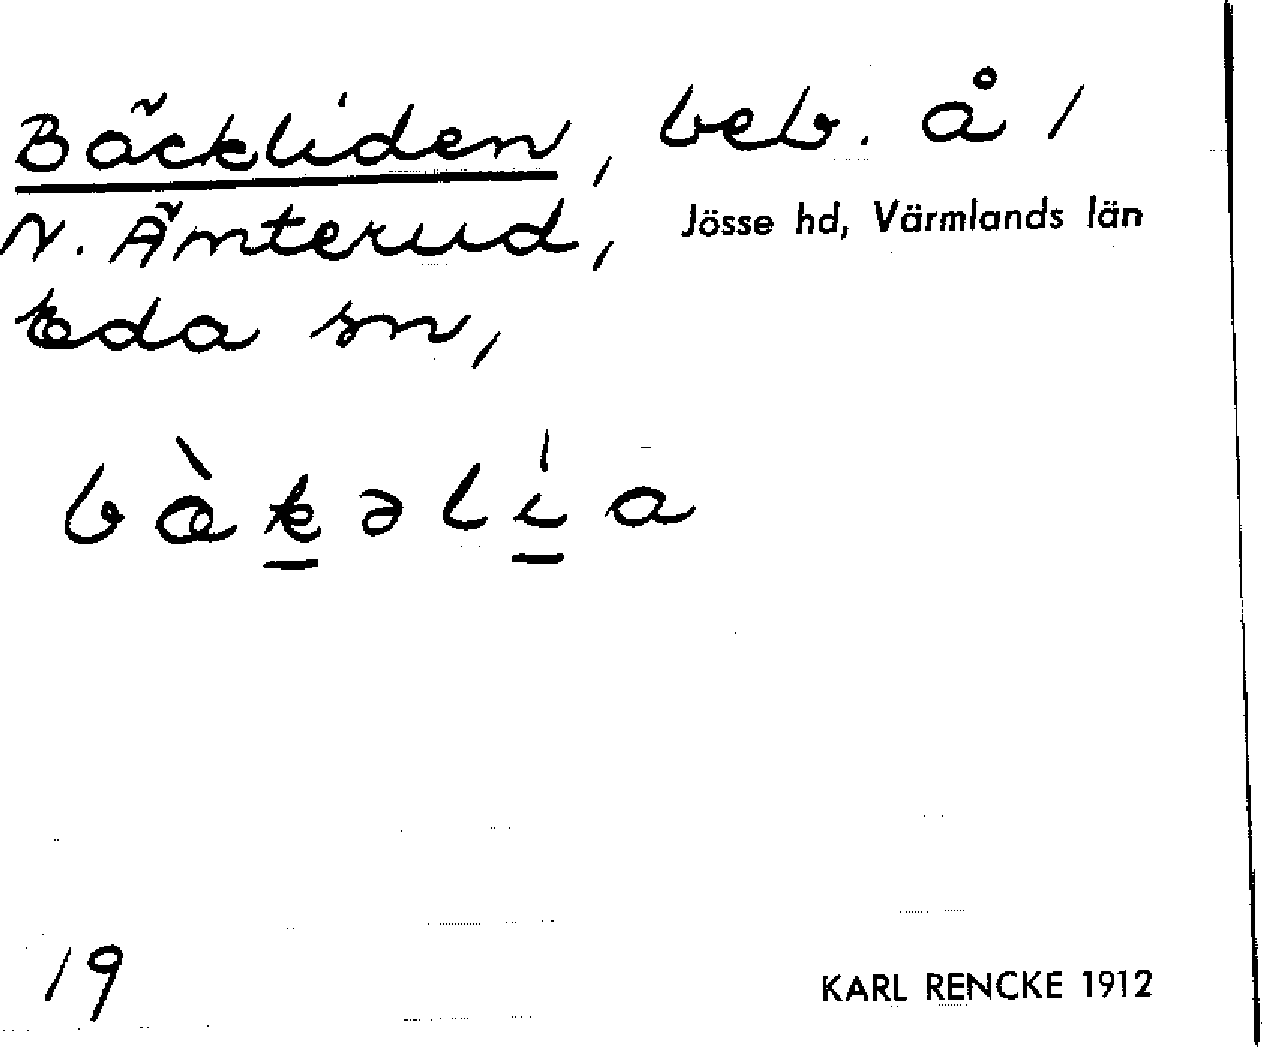 Bäckliden, beb. å /
N. Ämterud, Jösse hd, Värmlands län
Eda sn,
bæ̀kəlía
19
KARL RENCKE 1912